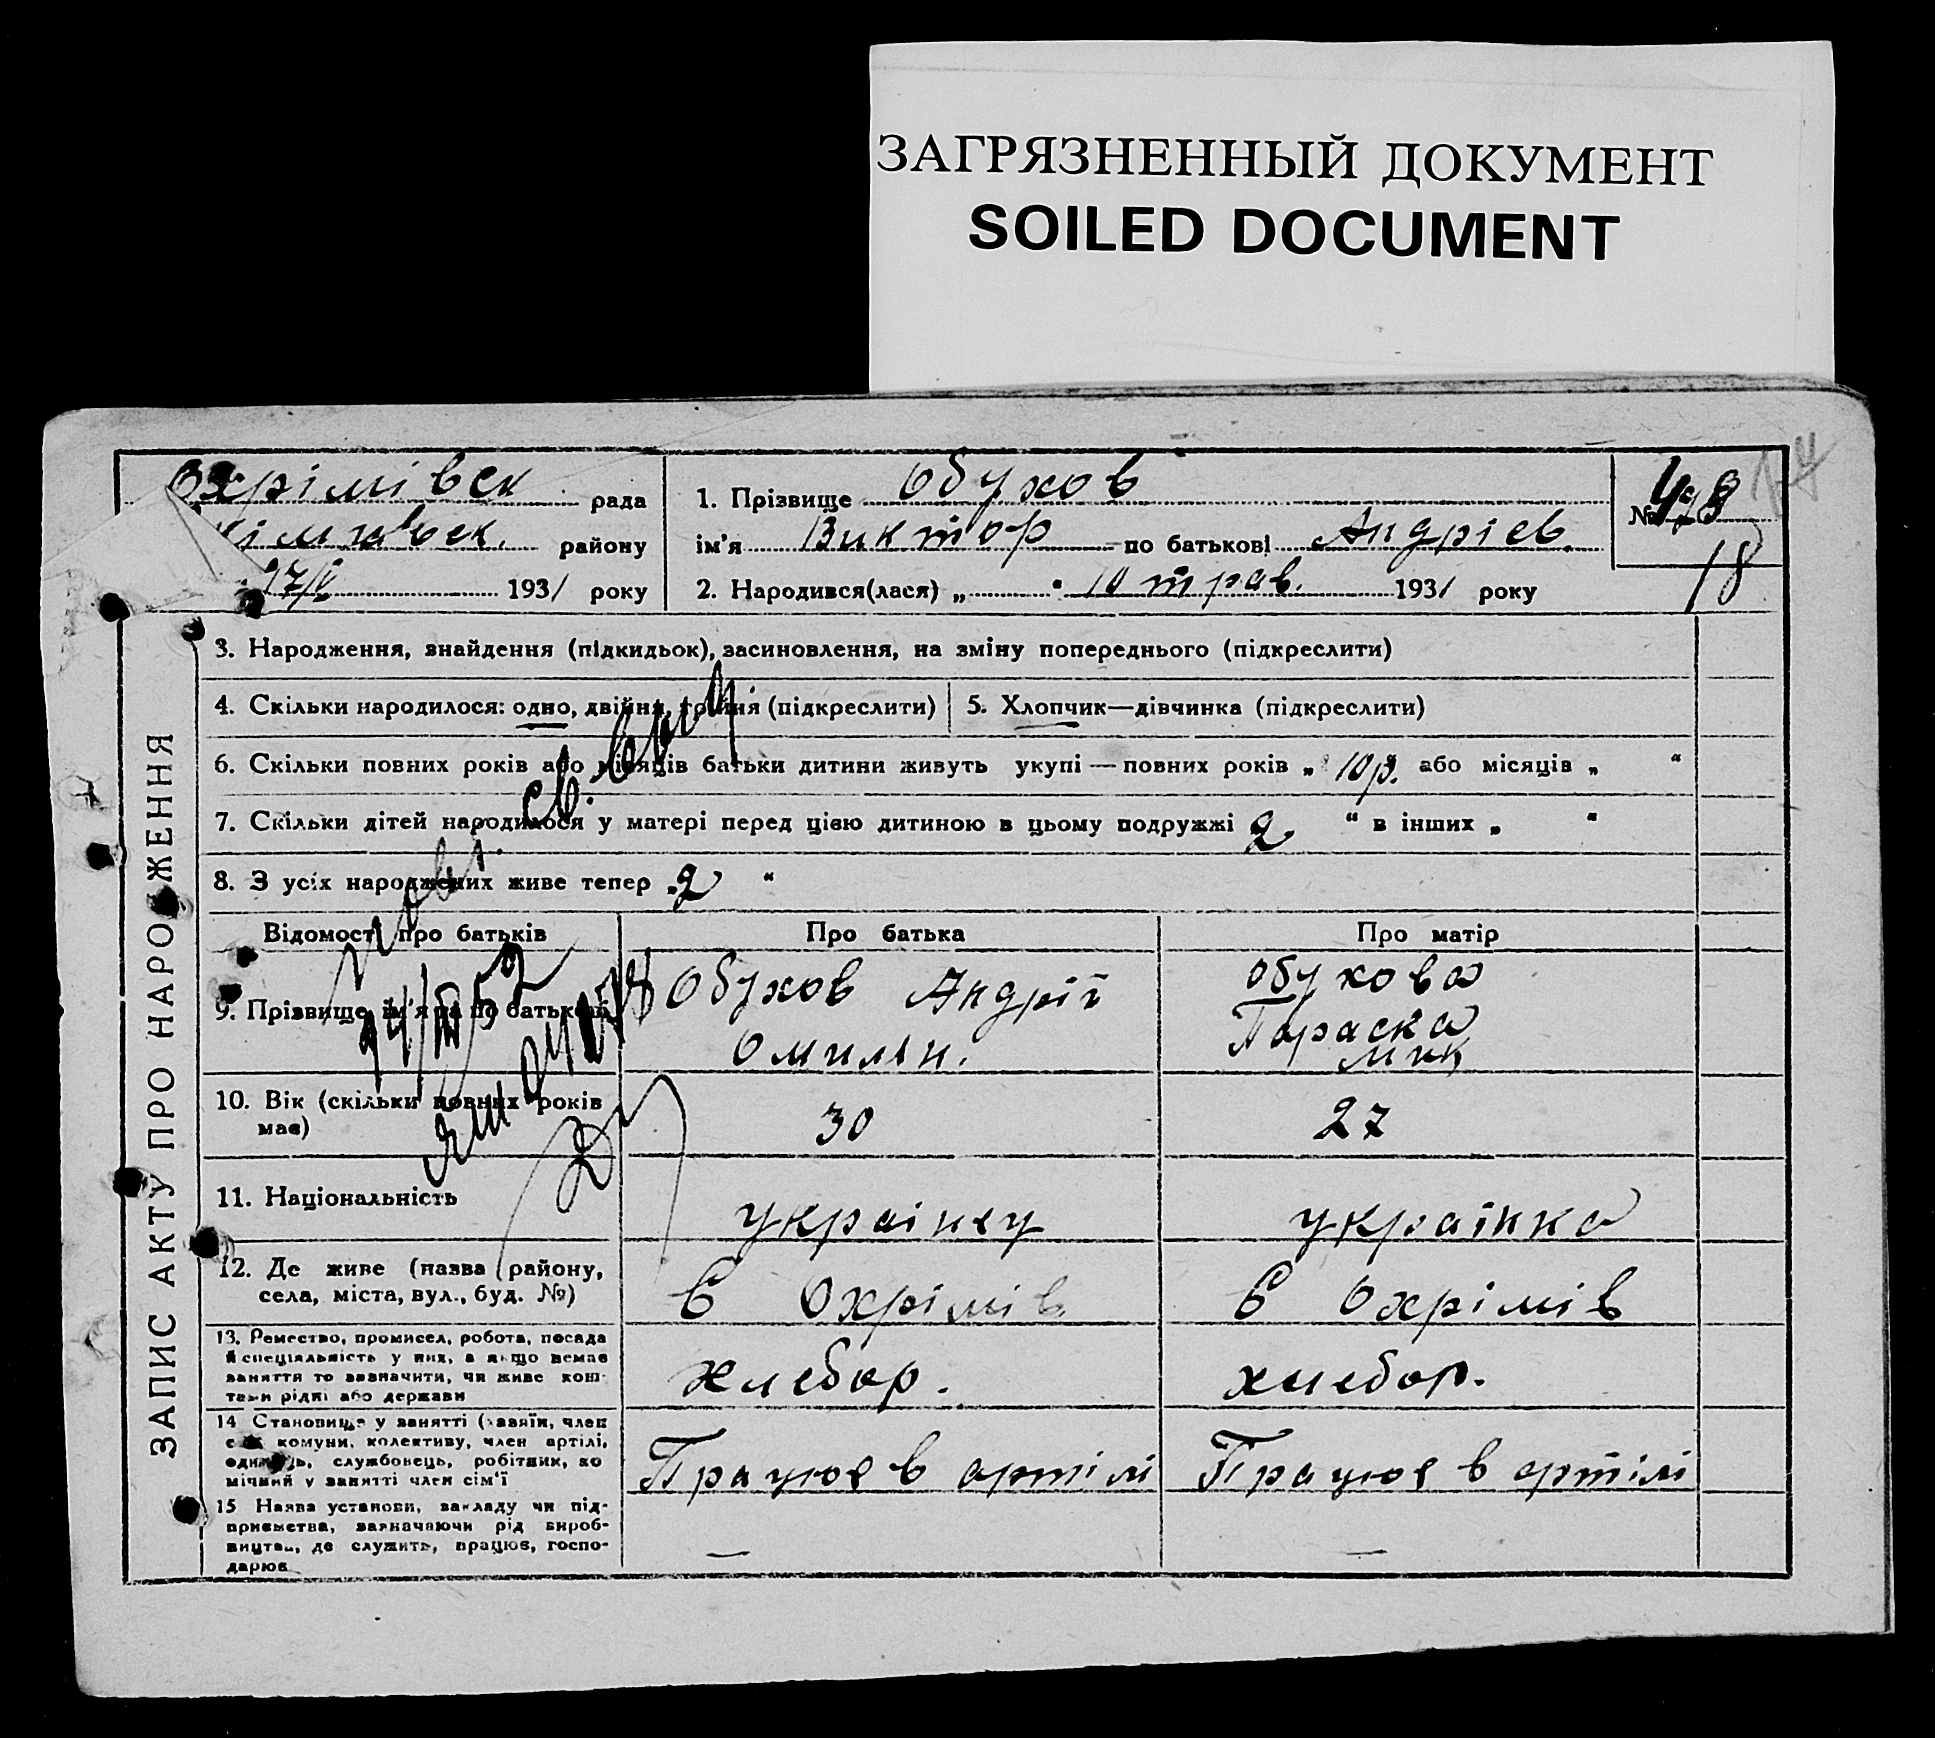 ЗАГРЯЗНЕННЫЙ ДОКУМЕНТ
SOILED DOCUMENT
Охрімівск рада
району
17/V 1931 року
1. Прізвище Обухов
ім'я Виктор по батькові Андріев.
2. Народився(лася) „ " 10 трав. 1931 року
№
18
ЗАПИС АКТУ ПРО НАРОДЖЕННЯ
3. Народження, знайдення (підкидьок), засиновлення, на зміну попереднього (підкреслити)
4. Скільки народилося: одно, двійня, тройня (підкреслити)
5. Хлопчик—дівчинка (підкреслити)
6. Скільки повних років або місяців батьки дитини живуть укупі — повних років „ 10р. або місяців „ “
7. Скільки дітей народилося у матері перед цією дитиною в цьому подружжі 2 “ в інших „ “
8. З усіх народжених живе тепер „2 “
Відомості про батьків
Про батька
Про матір
9. Прізвище, ім'я та по батькові
Обухов Андрій
Омильн.
Обухова
Параска
Мик
10. Вік (скільки повних років
має)
30
27
11. Національність
украінец
українка
12. Де живе (назва району,
села, міста, вул., буд. №)
Охрімів
Охрімів
13. Ремество, промисел, робота, посада
й спеціяльність у них, а якщо немає
заняття то зазначити, чи живе кош-
тами рідні або держави
хлебор.
хлебор.
14 Становище у занятті (хазяїн, член
с комуни, колективу, член артілі,
одинець, службовець, робітник, по
мічний у занятті член сім'ї
Працює в артілі
Працює в артілі
15 Назва установи, закладу чи під-
приємства, зазначаючи рід вироб-
ництва, де служить, працює, госпо-
дарює
—
—